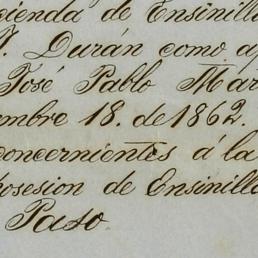 cienda de Ensinilla
J. Durán como a
José Pablo Mar
mbre 18. de 1862.
concernientes á la
posesion de Ensinilla
Paso.